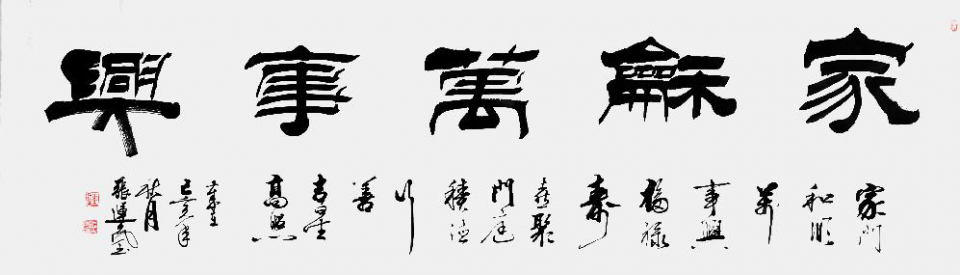 家龢萬事興
家門
和順
萬
事興
福祿
壽
喜聚
門庭
積德
行
善
吉星
高照
歲在
己亥年
秋月
張